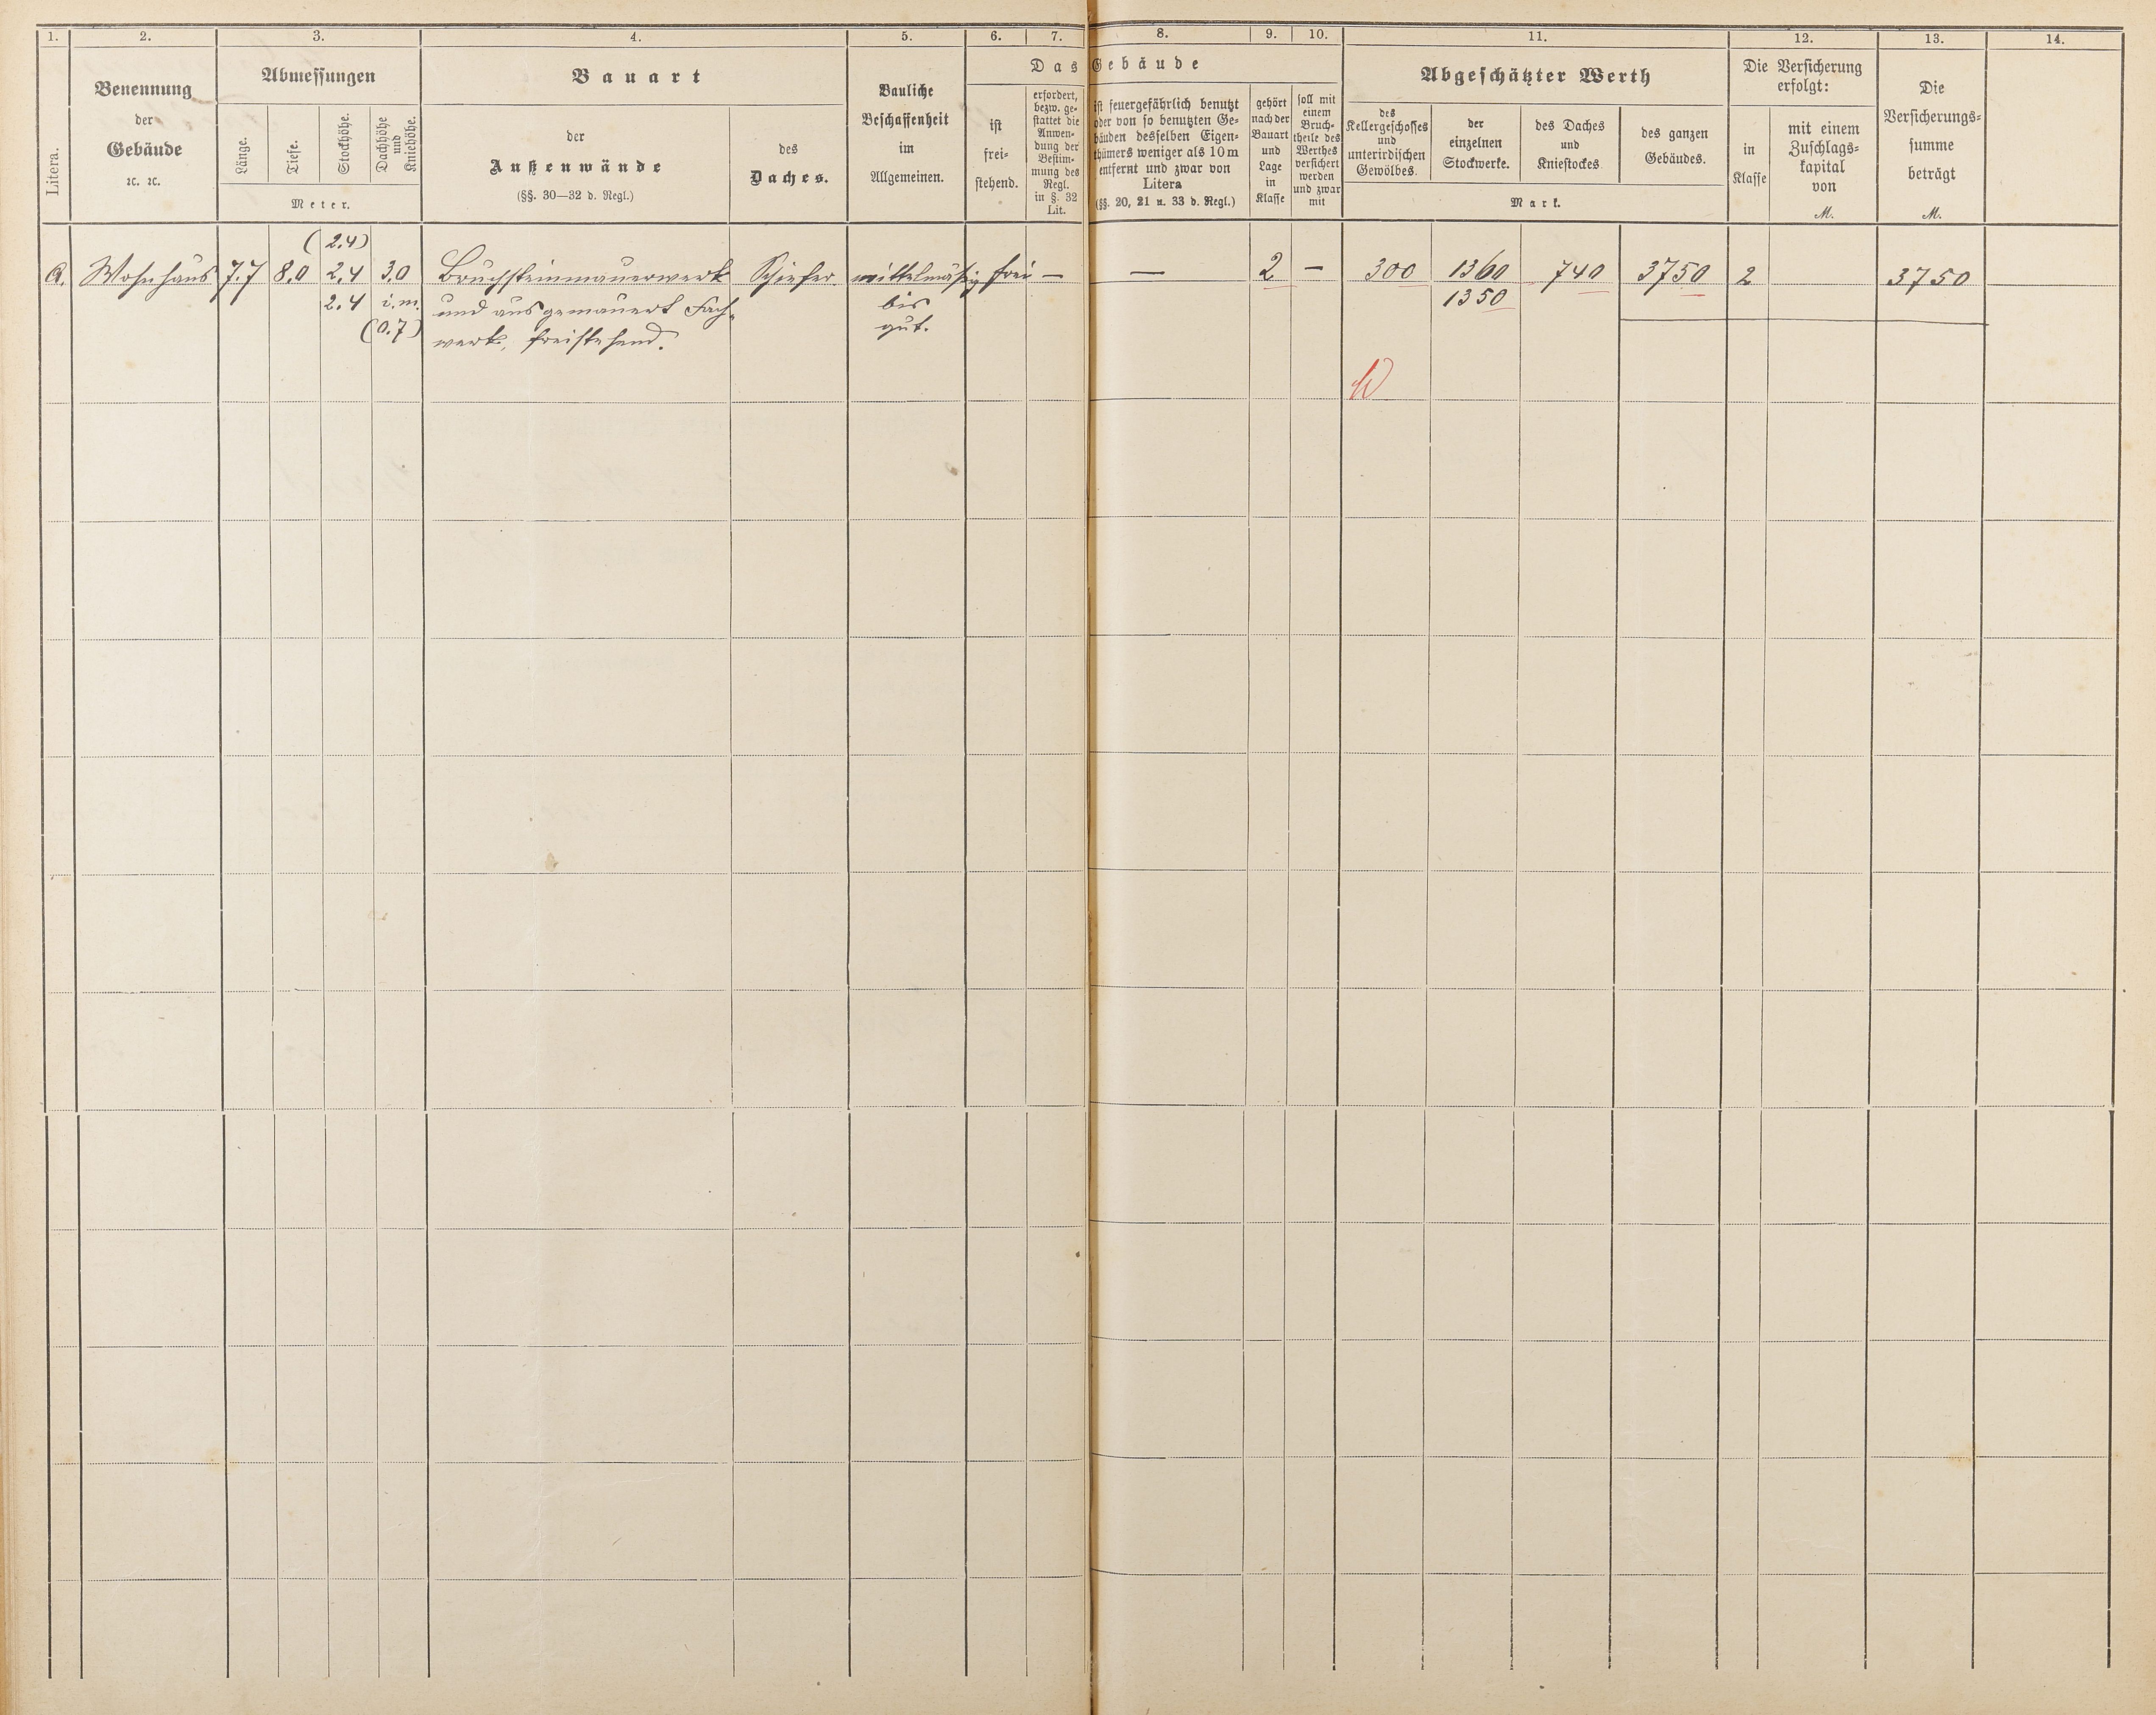 1. 2. 3. 4. 5. 6. 7. 8. 9. 10. 11. 12. 13. 14.
Litera.
Benennung
der
Gebäude
ꝛc. ꝛc.
Abmessungen
Länge.
Tiefe.
Stockhöhe.
Dachhöhe
und
Kniehöhe.
Meter.
Bauart
der
Außenwände
(§§. 30—32 d. Regl.)
des
Daches.
Bauliche
Beschaffenheit
im
Allgemeinen.
Das Gebäude
ist
frei-
stehend.
erfordert,
bezw. ge-
stattet die
Anwen-
dung der
Bestim-
mung des
Regl.
in §. 32
Lit.
ist feuergefährlich benutzt
oder von so benutzten Ge-
bäuden desselben Eigen-
thümers weniger als 10 m
entfernt und zwar von
Litera
(§§. 20, 21 u. 33 d. Regl.)
gehört
nach der
Bauart
und
Lage
in
Klasse
soll mit
einem
Bruch-
theile des
Werthes
versichert
werden
und zwar
mit
Abgeschätzter Werth
des
Kellergeschosses
und
unterirdischen
Gewölbes.
der
einzelnen
Stockwerke.
des Daches
und
Kniestockes
des ganzen
Gebäudes.
Mark.
Die Versicherung
erfolgt:
in
Klasse
mit einem
Zuschlags-
kapital
von
M.
Die
Versicherungs-
summe
beträgt
M.
(2.4)
a. Wohnhaus 7.7 8.0 2.4 3.0 Bruchsteinmauerwerk Schiefer mittelmäßig frei — — 2 — 300 1360 740 3750 2 3750
2.4 i. m. und ausgemauert Fach- bis 1350
(0.7) werk, freistehend. gut.